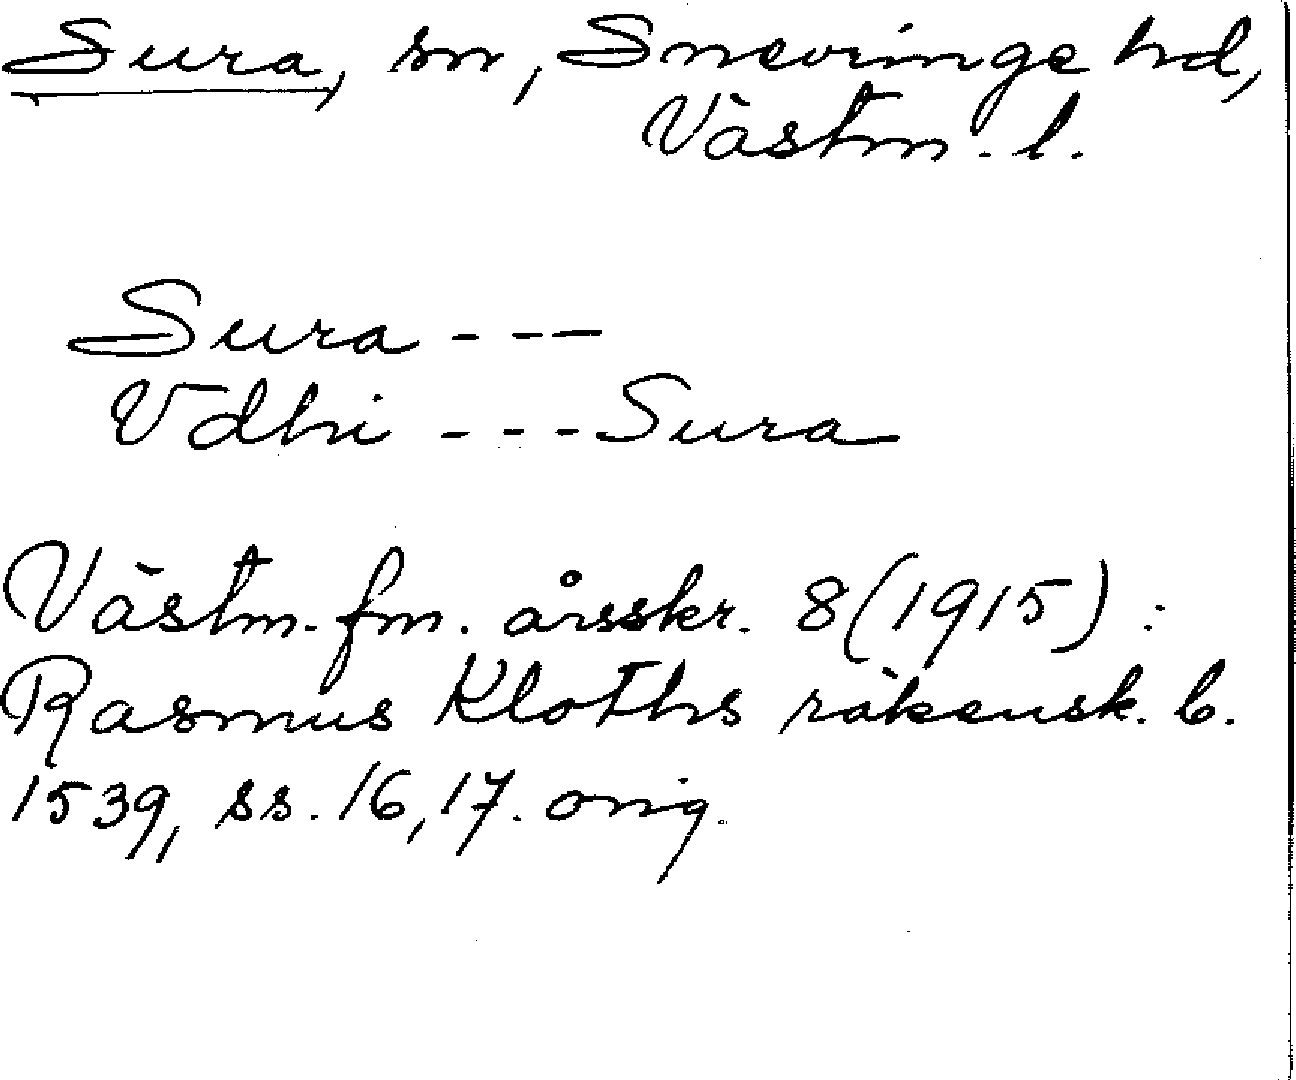 Sura, sn, Snevringe hd,
Västm. l.
Sura - - -
Vdhi - - - Sura
Västm. fm. årsskr. 8 (1915) :
Rasmus Kloths räkensk. b.
1539, ss. 16, 17. orig.